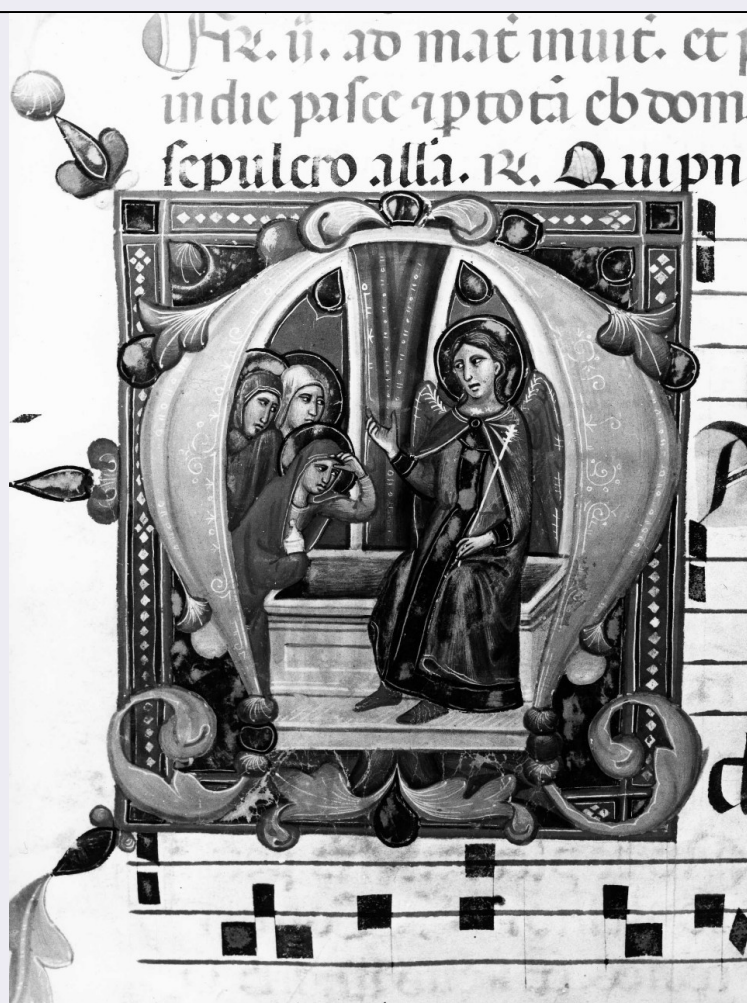 R. ii. ad mat̄ inuit̄. et p
in die pasce ⁊ p totā ebdom
sepulcro all̄a. R. Qui pn
A
d